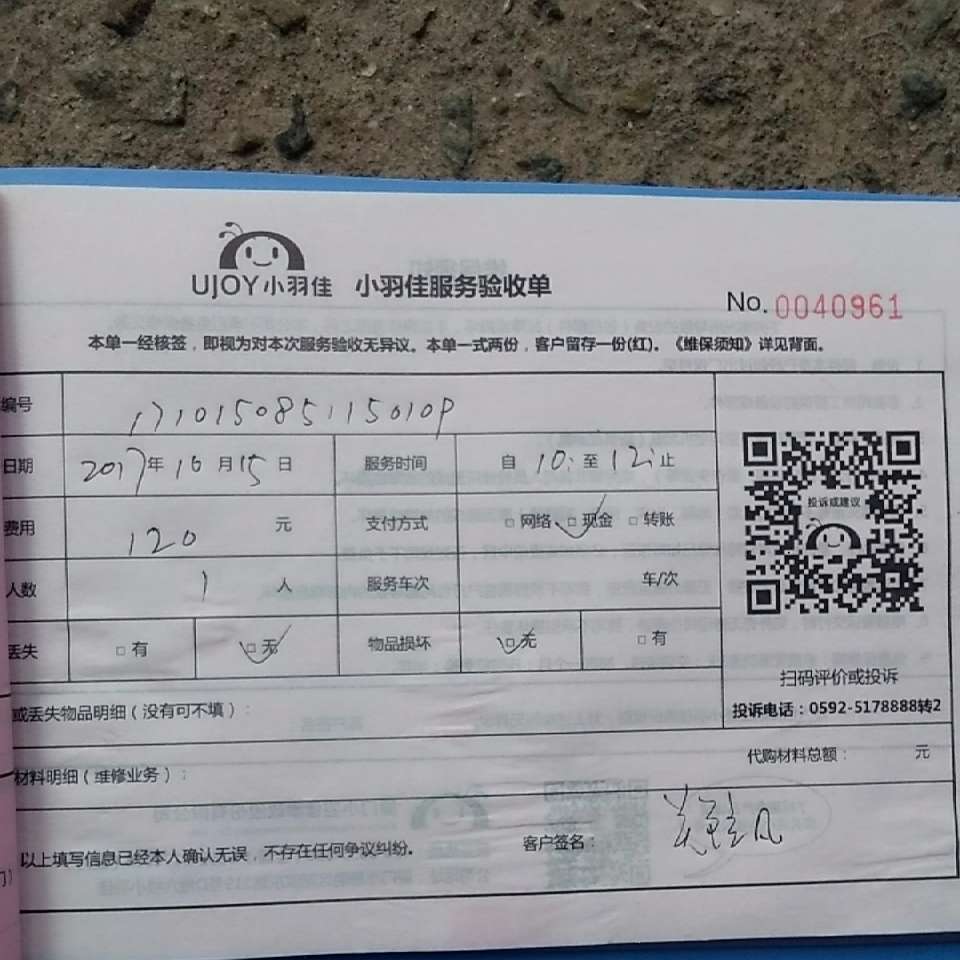 UJOY小羽佳 小羽佳服务验收单
No. 0040961
本单一经核签，即视为对本次服务验收无异议。本单一式两份，客户留存一份(红)。《维保须知》详见背面。
编号 171015085115010P
日期 2017年 10月 15日 服务时间 自 10: 至 12: 止
费用 120 元 支付方式 □ 网络 □ 现金 □ 转账
人数 1 人 服务车次 车/次
丢失 □ 有 □ 无 物品损坏 □ 无 □ 有
投诉或建议
扫码评价或投诉
投诉电话：0592-5178888转2
或丢失物品明细（没有可不填）：
代购材料总额： 元
材料明细（维修业务）：
以上填写信息已经本人确认无误，不存在任何争议纠纷。 客户签名：